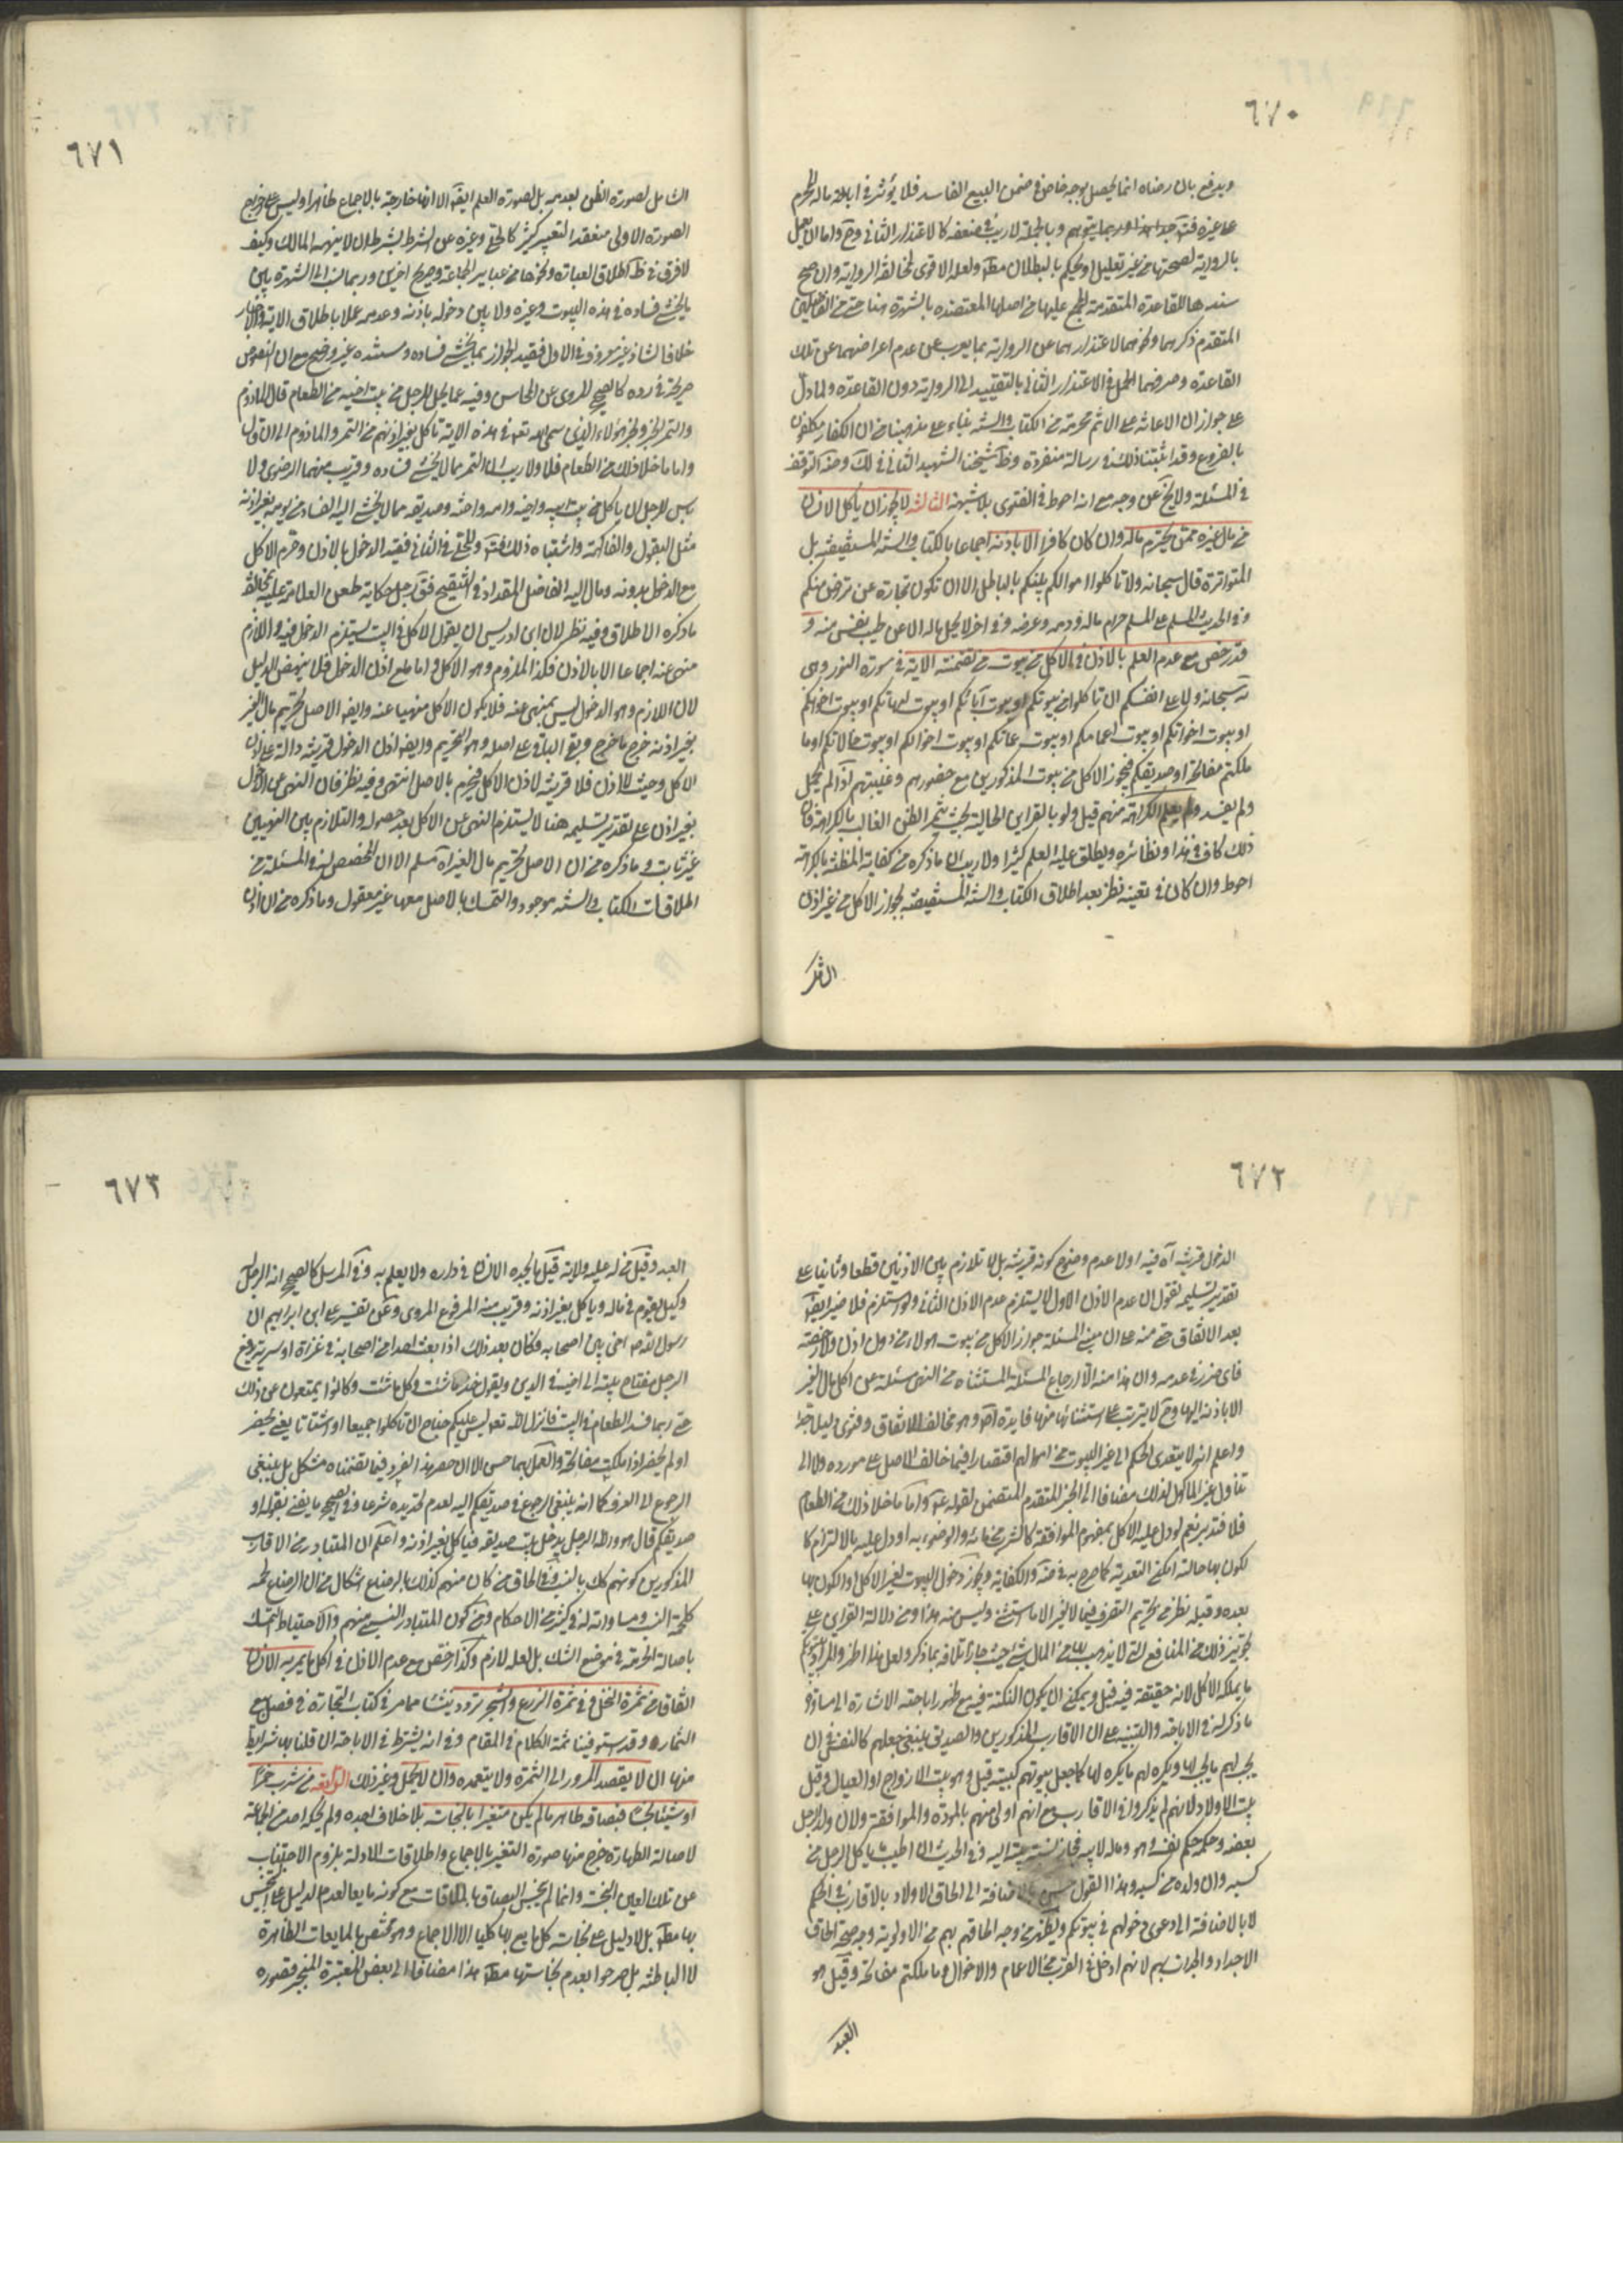 ٦٧٠
ويدفع بان رضاه انما يحصل بوجه خاص في ضمن البيع الفاسد فلا يؤثر في اباحة ماله المحرم
على غيره فت جدا هذا وربما يتوهم وبالجملة لا ريب في ضعفه كالاعتذار الثاني وح واما ان يعمل
بالرواية لصحتها من غير تعليل او يحكم بالبطلان مط ولعله الاقوى لمخالفة الرواية وان صح
سندها للقاعدة المتقدمة المجمع عليها من اصلها المعتضدة بالشهرة هنا حتى من الفاضلين
المتقدم ذكرهما ونحوهما لاعتذارهما عن الرواية بما يعرب عن عدم اعراضهما عن تلك
القاعدة وصرفهما الحمل في الاعتذار الثاني بالتقييد الى الرواية دون القاعدة ولما دل
على جواز ان الاعانة على الاثم محرمة من الكتاب والسنة بناء على مذهبنا من ان الكفار مكلفون
بالفروع وقد اثبتنا ذلك في رسالة منفردة وظ شيخنا الشهيد الثاني في لك وضه التوقف
في المسئلة ولا يخ عن وجه مع انه احوط في الفتوى بلا شبهة الثالثة لا يجوز ان ياكل الانسان
من مال غيره ممن يحترم ماله وان كان كافرا الا باذنه اجماعا بالكتاب والسنة المستفيضة بل
المتواترة قال سبحانه ولا تاكلوا اموالكم بينكم بالباطل الا ان تكون تجارة عن تراض منكم
وفي الحديث المسلم على المسلم حرام ماله ودمه وعرضه وفي اخر لا يحل ماله الا عن طيب نفس منه و
قد رخص مع عدم العلم بالاذن في الاكل من بيوت من تضمنته الاية في سورة النور وهي
قه سبحانه ولا على انفسكم ان تاكلوا من بيوتكم او بيوت آبائكم او بيوت امهاتكم او بيوت اخوانكم
او بيوت اخواتكم او بيوت اعمامكم او بيوت عماتكم او بيوت اخوالكم او بيوت خالاتكم او ما
ملكتم مفاتحه او صديقكم فيجوز الاكل من بيوت المذكورين مع حضورهم وغيبتهم اذا لم يحمل
ولم يفسد ولم يعلم الكراهة منهم قيل ولو بالقراين الحالية بحيث يثمر الظن الغالب بالكراهة فان
ذلك كاف في هذا ونظائره ويطلق عليه العلم كثيرا ولا ريب ان ما ذكره من كفاية المظنة بالكراهة
احوط وان كان في تعينه نظر بعد اطلاق الكتاب والسنة المستفيضة بجواز الاكل من غير اذن
الشامل
٦٧١
الشامل لصورة الظن بعدمه بل لصورة العلم ايض الا انها خارجة بالاجماع ظاهرا وليس على خروج
الصورة الاولى منعقدا لتعبير كثير كالحلي وغيره عن الشرط بشرط ان لا ينهه المالك وكيف
لا فرق في ظ اطلاق العبارة ونحوها من عبائر الجماعة وصريح اخرين وربما نسب الى الشهرة بين
ما يخشى فساده في هذه البيوت وغيره ولا بين دخوله باذنه وعدمه عملا باطلاق الاية والاخبار
خلافا لشاذ غير معروف في الاول فيقيد الجواز بما يخشى فساده ومستنده غير وضح مع ان النصوص
صريحة في رده كالصحيح المروي عن المحاسن وفيه عما يحل للرجل من بيت اخيه من الطعام قال المادوم
والتمر الخبر ولخبر هؤلاء الذين سمى الله تع في هذه الاية تاكل بغير اذنهم من التمر والمادوم الى ان قال
واما ما خلا ذلك من الطعام فلا ولا ريب ان التمر مما لا يخشى فساده وقريب منهما الرضوي ولا
باس للرجل ان ياكل من بيت ابيه واخيه وامه واخته وصديقه ما لا يخشى اليه الفساد من يومه بغير اذنه
مثل البقول والفاكهة واشباه ذلك وللحلي في الثاني فقيد الدخول بالاذن وحرم الاكل
مع الدخول بدونه ومال اليه الفاضل المقداد في التنقيح فق بعد حكاية طعن العلامة عليه بمخالفة
ما ذكره الاطلاق وفيه نظر لان ابن ادريس ان يقول الاكل في البيت يستلزم الدخول فيه واللازم
منهي عنه اجماعا الا بالاذن فكذا الملزوم وهو الاكل واما مع اذن الدخول فلا ينهض الدليل
لان اللازم وهو الدخول ليس بمنهي عنه فلا يكون الاكل منهيا عنه وايض الاصل تحريم مال الغير
بغير اذنه خرج ما خرج وبقي الباقي على اصله وهو التحريم وايض اذن الدخول قرينة دالة على اذن
الاكل وحيث لا اذن فلا قرينة لاذن الاكل فيحرم بالاصل انتهى وفيه نظر فان النهي عن الدخول
بغير اذن على تقدير تسليمه هنا لا يستلزم النهي عن الاكل بعد حصوله والتلازم بين النهيين
غير ثابت وما ذكره من ان الاصل تحريم مال الغير اه مسلم الا ان المخصص له في المسئلة من
اطلاقات الكتاب والسنة موجود والتمسك بالاصل معها غير معقول وما ذكره من ان اذن
٦٧٢
الدخول قرينة اه فيه اولا عدم وضوح كونه قرينة بل لا تلازم بين الاذنين قطعا وثانيا على
تقدير تسليمه نقول ان عدم الاذن الاول لا يستلزم عدم الاذن الثاني ولو استلزم فلا ضير ايض
بعد الاتفاق حتى منه على ان مبنى المسئلة جواز الاكل من بيوت هولاء من دون اذن ولا رخصة
فاي ضرر في عدمه وان هذا منه الا ارجاع المسئلة المستثناة من النص مسئلة عن اكل مال الغير
الا باذنه اليها وح لا يترتب على استثنائها منها فايدة اصلا وهو مخالف للاتفاق وفتوى وليل جدا
واعلم انه لا يتعدى الحكم الى غير البيوت من اموالهم اقتصارا فيما خالف الاصل على مورده ولا الى
تناول غير الماكول لذلك مضافا الى الخبر المتقدم المتضمن لقوله ع واما ما خلا ذلك من الطعام
فلا فتدبر نعم لو دل عليه الاكل بمفهوم الموافقة كالشرب من مائه والوضوء به او دل عليه بالالتزام كا
لكون بها حالته امكن التعدية كما صرح به في ضه والكفاية ويجوز دخول البيوت لغير الاكل او الكون بها
بعده وقبله نظر من تحريم التصرف فيما لا للغير الا ما استثنى وليس منه هذا ومن دلالة القراين على
تجويز ذلك من المنافع التي لا يذهب بها من المال شئ حيث جاز اتلافه بما ذكر ولعل هذا اظهر والمراد ببيوتكم
ما يملكه الاكل لانه حقيقة فيه قيل ويمكن ان يكون النكتة فيه مع ظهور اباحته الاشارة الى مساواة
ما ذكر له في الاباحة والتنبيه على ان الاقارب المذكورين والصديق ينبغي جعلهم كالنفس في ان
يحب لهم ما يحب لها ويكره لهم ما يكره لها كما جعل بيوتهم كبيته قيل وهو بيت الازواج او العيال وقيل
بيت الاولاد لانهم لم يذكروا في الاقارب مع انهم اولى منهم بالمودة والموافقة ولان ولد الرجل
بعضه وحكمه حكم نفسه وهو وماله لابيه فجاز نسبة بيته اليه وفي الحديث ان اطيب ما ياكل الرجل من
كسبه وان ولده من كسبه وهذا القول حسن بالاضافة الى الحاق الاولاد بالاقارب في الحكم
لا بالاضافة الى دعوى دخولهم في بيوتكم ويظهر من وجه الحاقهم بهم من الاولوية وجه صحة الحاق
الاجداد والجدات بهم لانهم ادخل في القرب من الاعمام والاخوال وما ملكتم مفاتحه وقيل هو
العبد
٦٧٣
العبد وقيل من له عليه ولاية قيل ما يجده الانسان في داره ولا يعلم به وفي المرسل كالصحيح انه الرجل
وكيل يقوم في ماله وياكل بغير اذنه وقريب منه المرفوع المروي وعن تفسير علي ابن ابراهيم ان
رسول الله ص اخى بين اصحابه فكان بعد ذلك اذا بعث احدا من اصحابه في غزاة او سرية يدفع
الرجل مفتاح بيته الى اخيه في الدين ويقول خذ ما شئت وكل ما شئت وكانوا يمتنعون عن ذلك
حتى ربما فسد الطعام في البيت فانزل الله تع ليس عليكم جناح ان تاكلوا جميعا او اشتاتا يعني لحضر
او لم يحضر اذا ملكت مفاتحه والعمل بهما حسن الا ان حصر هذا الفرد فيما تضمناه مشكل بل ينبغي
الرجوع الى العرف كما انه ينبغي الرجوع في صديقكم اليه لعدم تحديده شرعا وفي الصحيح ما يعني بقوله او
صديقكم قال هو والله الرجل يدخل بيت صديقه فياكل بغير اذنه واعلم ان المتبادر من الاقارب
المذكورين كونهم كك بالنسب وفي الحاق من كان منهم كذلك بالرضاع اشكال من ان الرضاع لحمة
كلحمة النسب ومساواته له في كثير من الاحكام ومن كون المتبادر النسبي منهم والاحتياط التمسك
باصالة الحرمة في موضع الشك بل لعله لازم وكذا رخص مع عدم الاذن في اكل ما يمر به الانسان
اتفاقا من ثمرة النخل وفي ثمرة الزرع والشجر تردد ينشأ مما مر في كتاب التجارة في فصل بيع
الثمار وقد استوفينا ثمة الكلام في المقام وفي انه يشترط في الاباحة ان قلنا بها شرايط
منها ان لا يقصد المرور الى الثمرة ولا يتعمده وان لا يحمل وغير ذلك الرابعة من شرب خمرا
او شيئا نجسا فبصاقه طاهر ما لم يكن متغيرا بالنجاسة بلا خلاف اجده ولم يحكه احد من الجماعة
لاصالة الطهارة خرج منها صورة التغير بالاجماع واطلاقات الادلة بلزوم الاجتناب
عن تلك العين النجسة وانما لم ينجس البصاق بالملاقات مع كونه مايعا لعدم الدليل على تنجيس
بها مط بل لا دليل على نجاسة كل مايع بها كليا الا الاجماع وهو مختص بالمايعات الظاهرة
لا الباطنة بل صرحوا بعدم نجاستها مط هذا مضافا الى بعض المعتبرة المنجبر قصوره